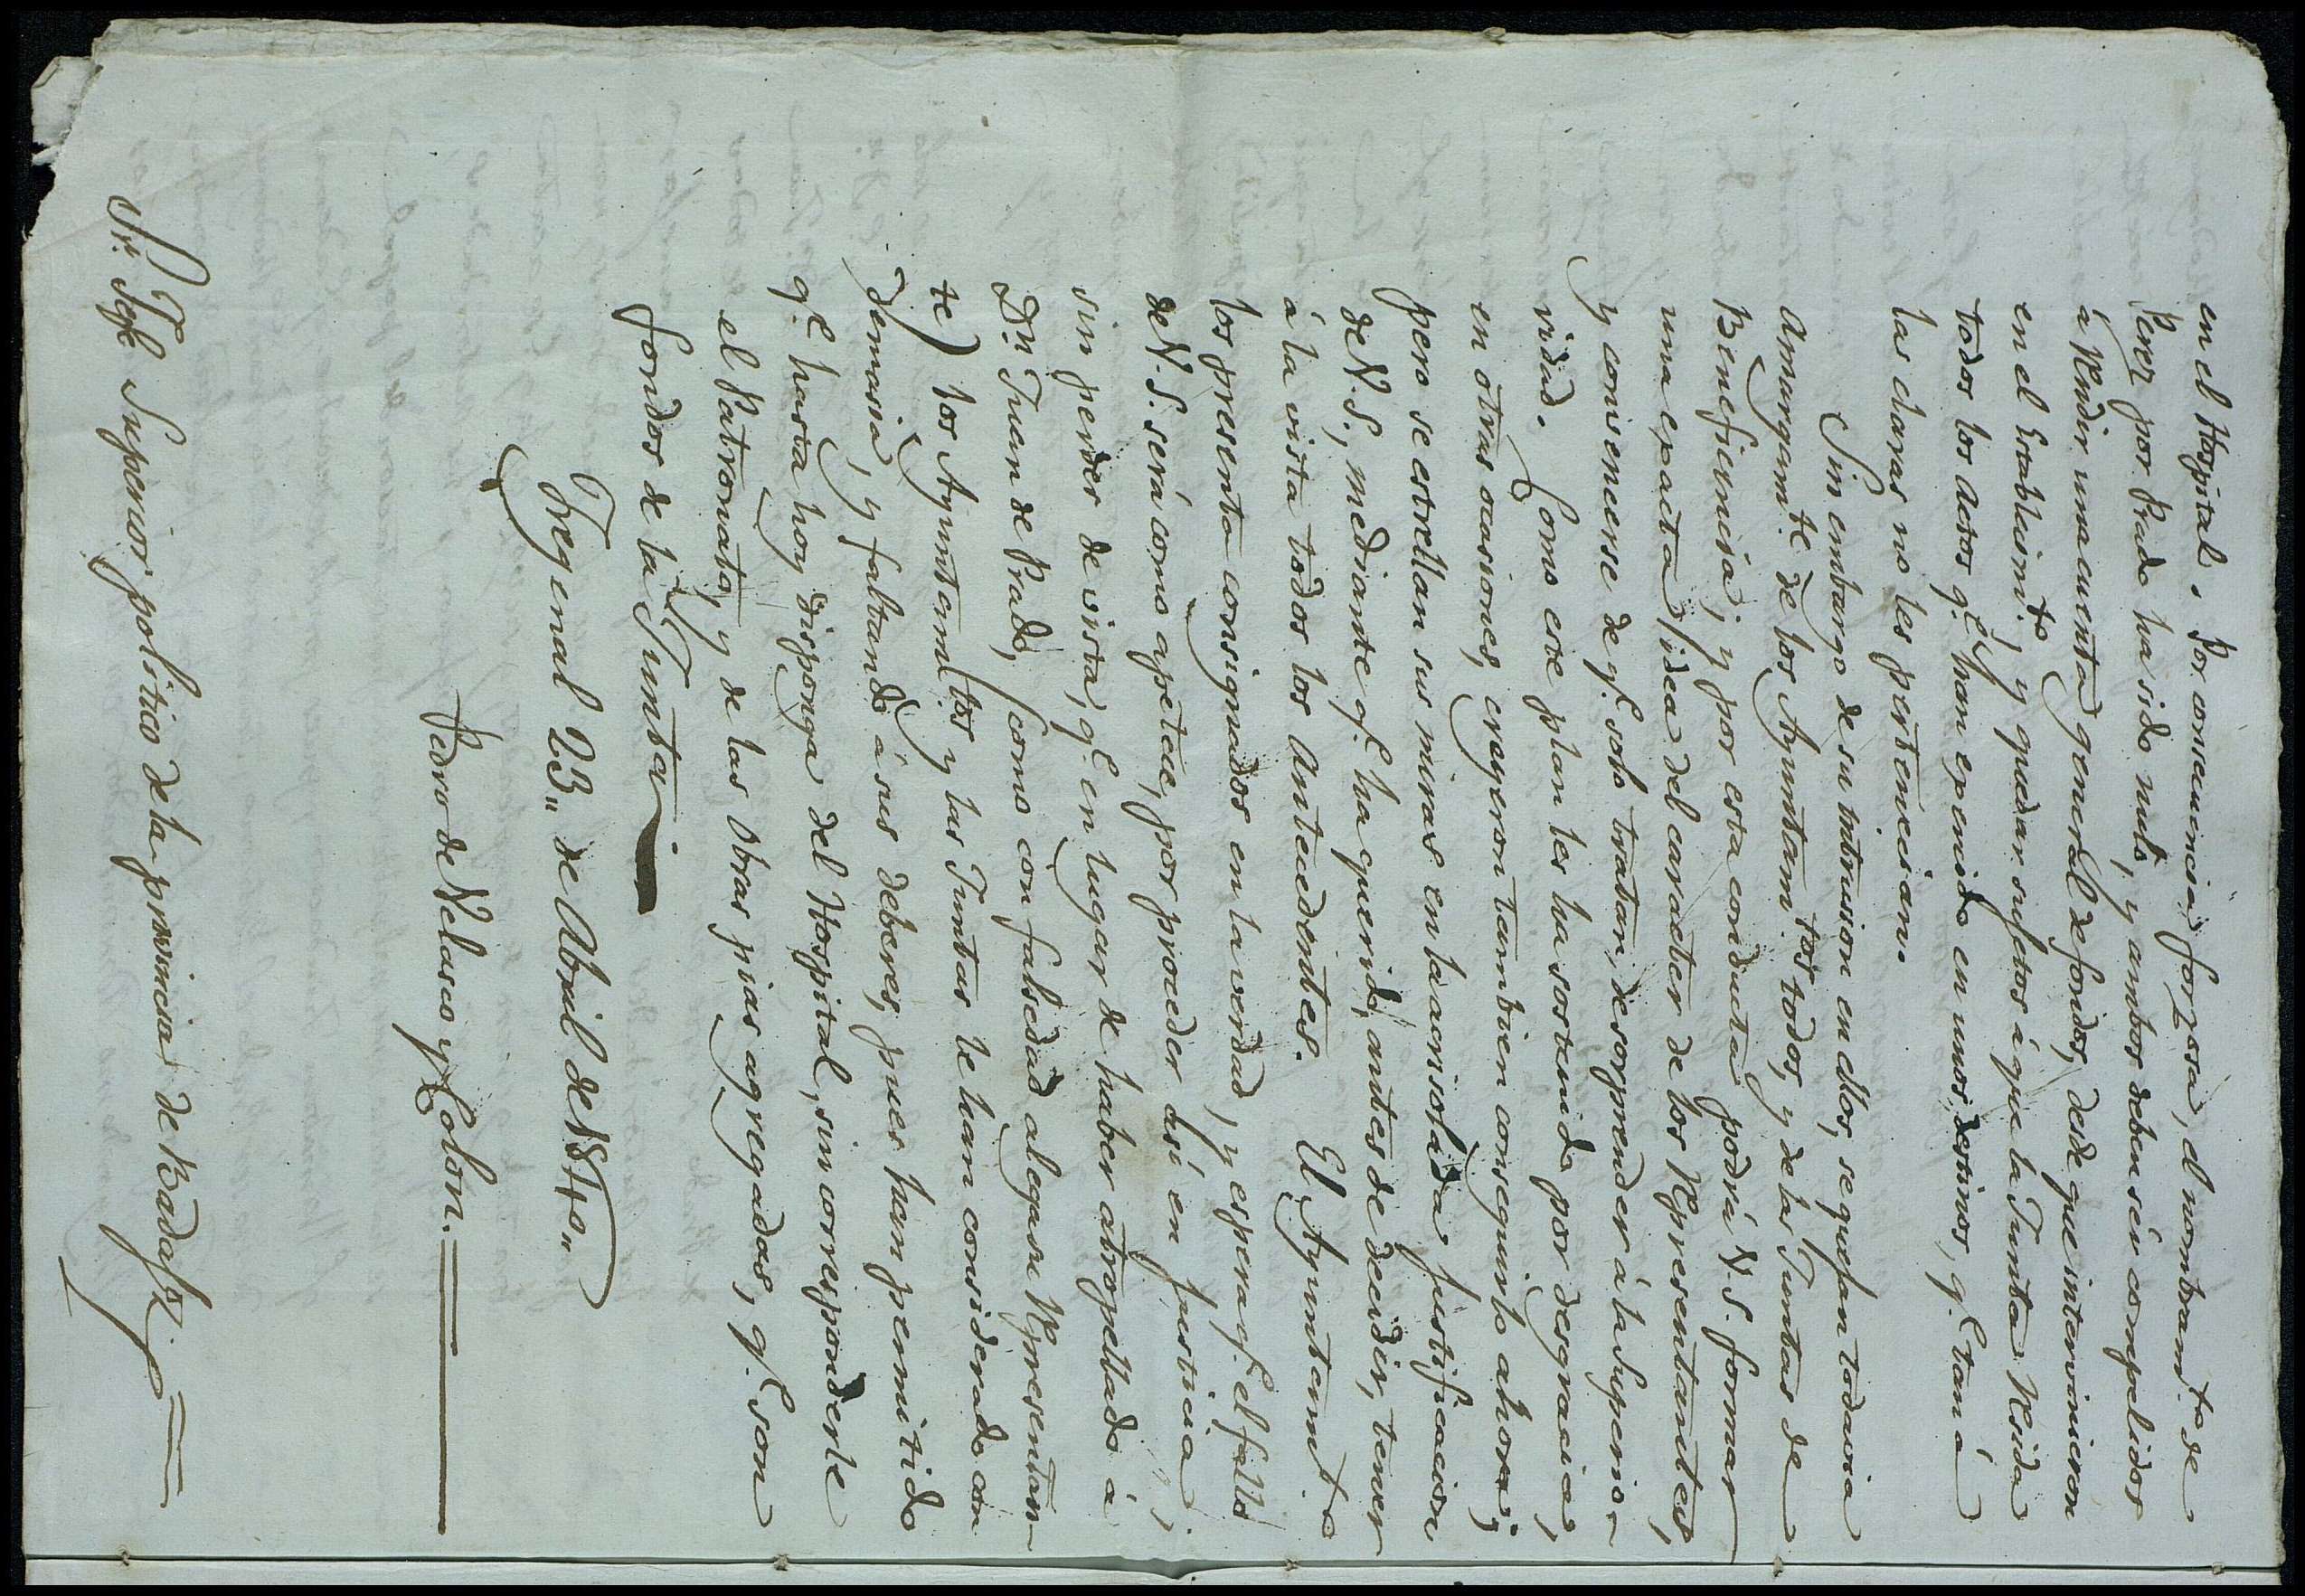 en el Hospital. Por consecuencia forzosa, el nombram.to de
Perez por Prado ha sido nulo, y ambos deben sér compelidos
à rendir una cuenta general de fondos, desde que intervinieron
en el Establecim.to, y quedar sujetos á que la Junta recida
todos los actos q.e han egercido en unos destinos, q.e tan á
las claras no les pertenecian.
Sin embargo de su intrusion en ellos, se quejan todavia
amargam.te de los Ayuntam.tos todos, y de las Juntas de
Beneficencia; y por esta conducta podrá V.S. formar
una epacta idea del caracter de los Representantes,
y convencerse de q.e solo tratan de sorprender á la Superio-
ridad. Como este plan les ha sostenido por desgracia,
en otras ocasiones, creyeron tambien conseguirlo ahora;
pero se estrellan sus miras en la acrisolada justificacion
de V.S., mediante q.e ha querido, antes de decidir, tener
á la vista todos los antecedentes. El Ayuntam.to
los presenta consignados en la verdad, y espera q.e el fallo
de V.S. será como apetece, por proceder así en justicia;
sin perder de vista, q.e en lugar de haber atropellado à
D.n Juan de Prado, (como con falsedad alega su Representan-
te) los Ayuntam.tos y las Juntas le han considerado con
demasia, y faltando á sus deberes, pues han permitido
q.e hasta hoy disponga del Hospital, sin corresponderle
el Patronato, y de las Obras pias agregadas, q.e son
fondos de la Junta.
Fregenal 23,, de Abril de 1840,,
Pedro de Velasco y Colon.
Sr. Jefe Superior politico de la provincia de Badajoz.